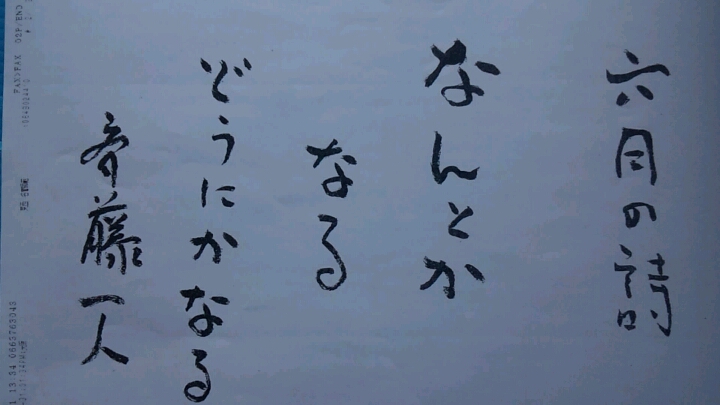 六月の詩
なんとか
なる
どうにかなる
斉藤一人